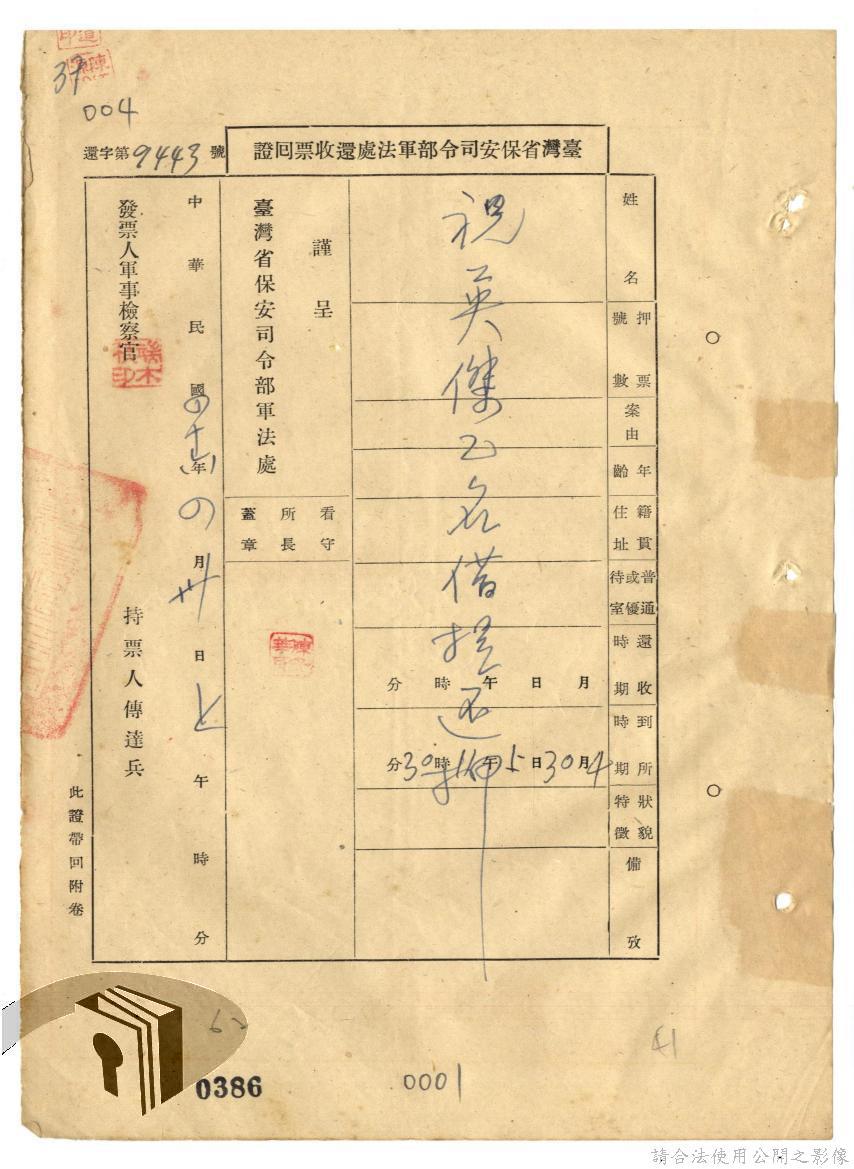 37
004
臺灣省保安司令部軍法處還收票回證
還字第9443號
姓名
押票號數
案由
年齡
籍貫住址
普通或優待室
還收時期
月日午時分
到所時期
4月30日午時30分
狀貌特徵
備攷
祝英傑
名借提還押
謹呈
臺灣省保安司令部軍法處
看守所長蓋章
中華民國年月卅日午時分
發票人軍事檢察官
持票人傳達兵
此證帶回附卷
0386
0001
41
請合法使用公開之影像